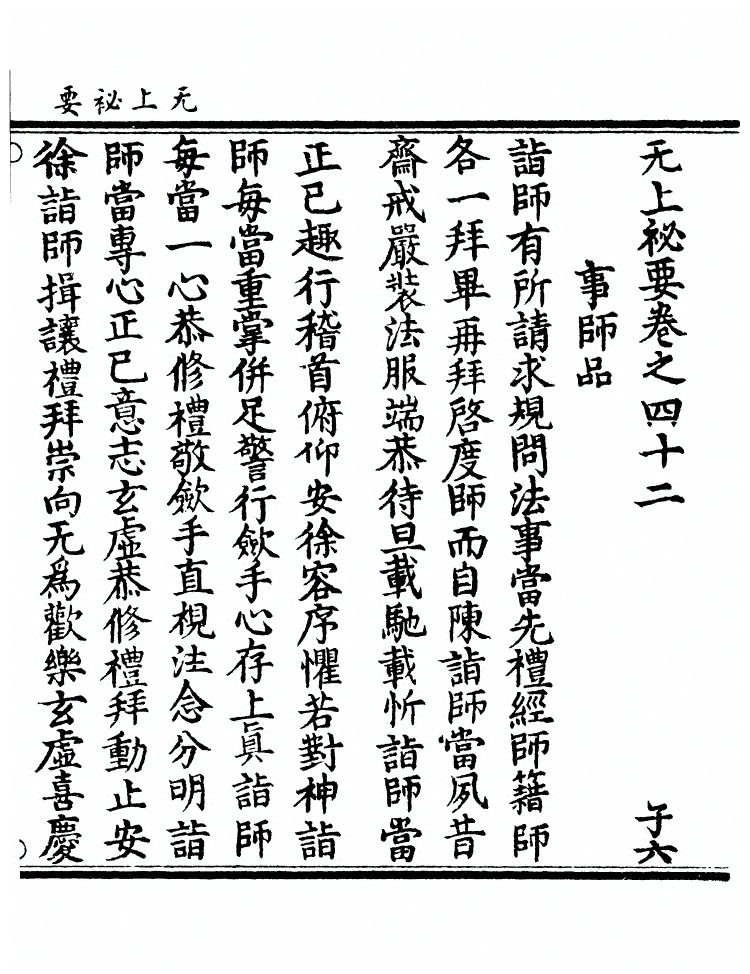 无上祕要
无上祕要卷之四十二 子六
事師品
詣師有所請求規問法事當先禮經師籍師
各一拜畢再拜啓度師而自陳詣師當夙昔
齋戒嚴裝法服端恭待旦載馳載忻詣師當
正已趣行稽首俯仰安徐容序懼若對神詣
師每當重掌併足警行斂手心存上真詣師
每當一心恭修禮敬斂手直視注念分明詣
師當專心正已意志玄虛恭修禮拜動止安
徐詣師揖讓禮拜崇向无爲歡樂玄虛喜慶